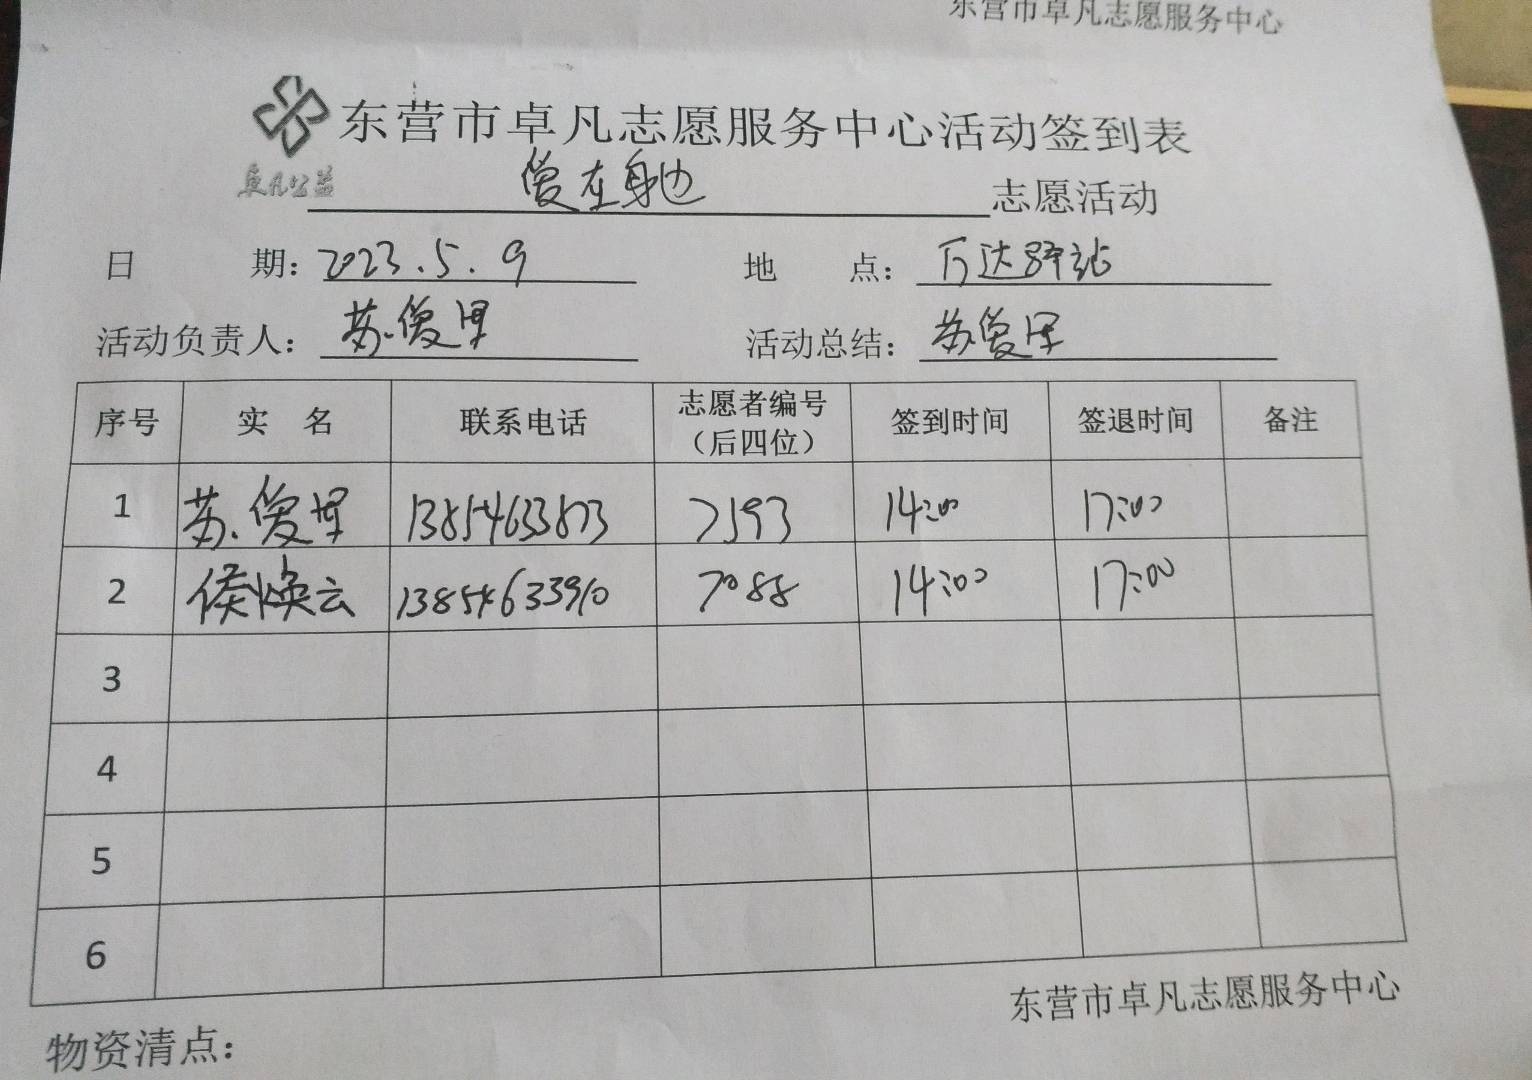 东营市卓凡志愿服务中心
东营市卓凡志愿服务中心活动签到表
卓凡公益
爱在身边 志愿活动
日 期：2023.5.9 地 点：万达驿站
活动负责人：苏爱 活动总结：苏爱
序号 实 名 联系电话 志愿者编号（后四位） 签到时间 签退时间 备注
1 苏爱 13854633873 7593 14:00 17:00
2 侯焕云 13854633910 7088 14:00 17:00
3
4
5
6
东营市卓凡志愿服务中心
物资清点：